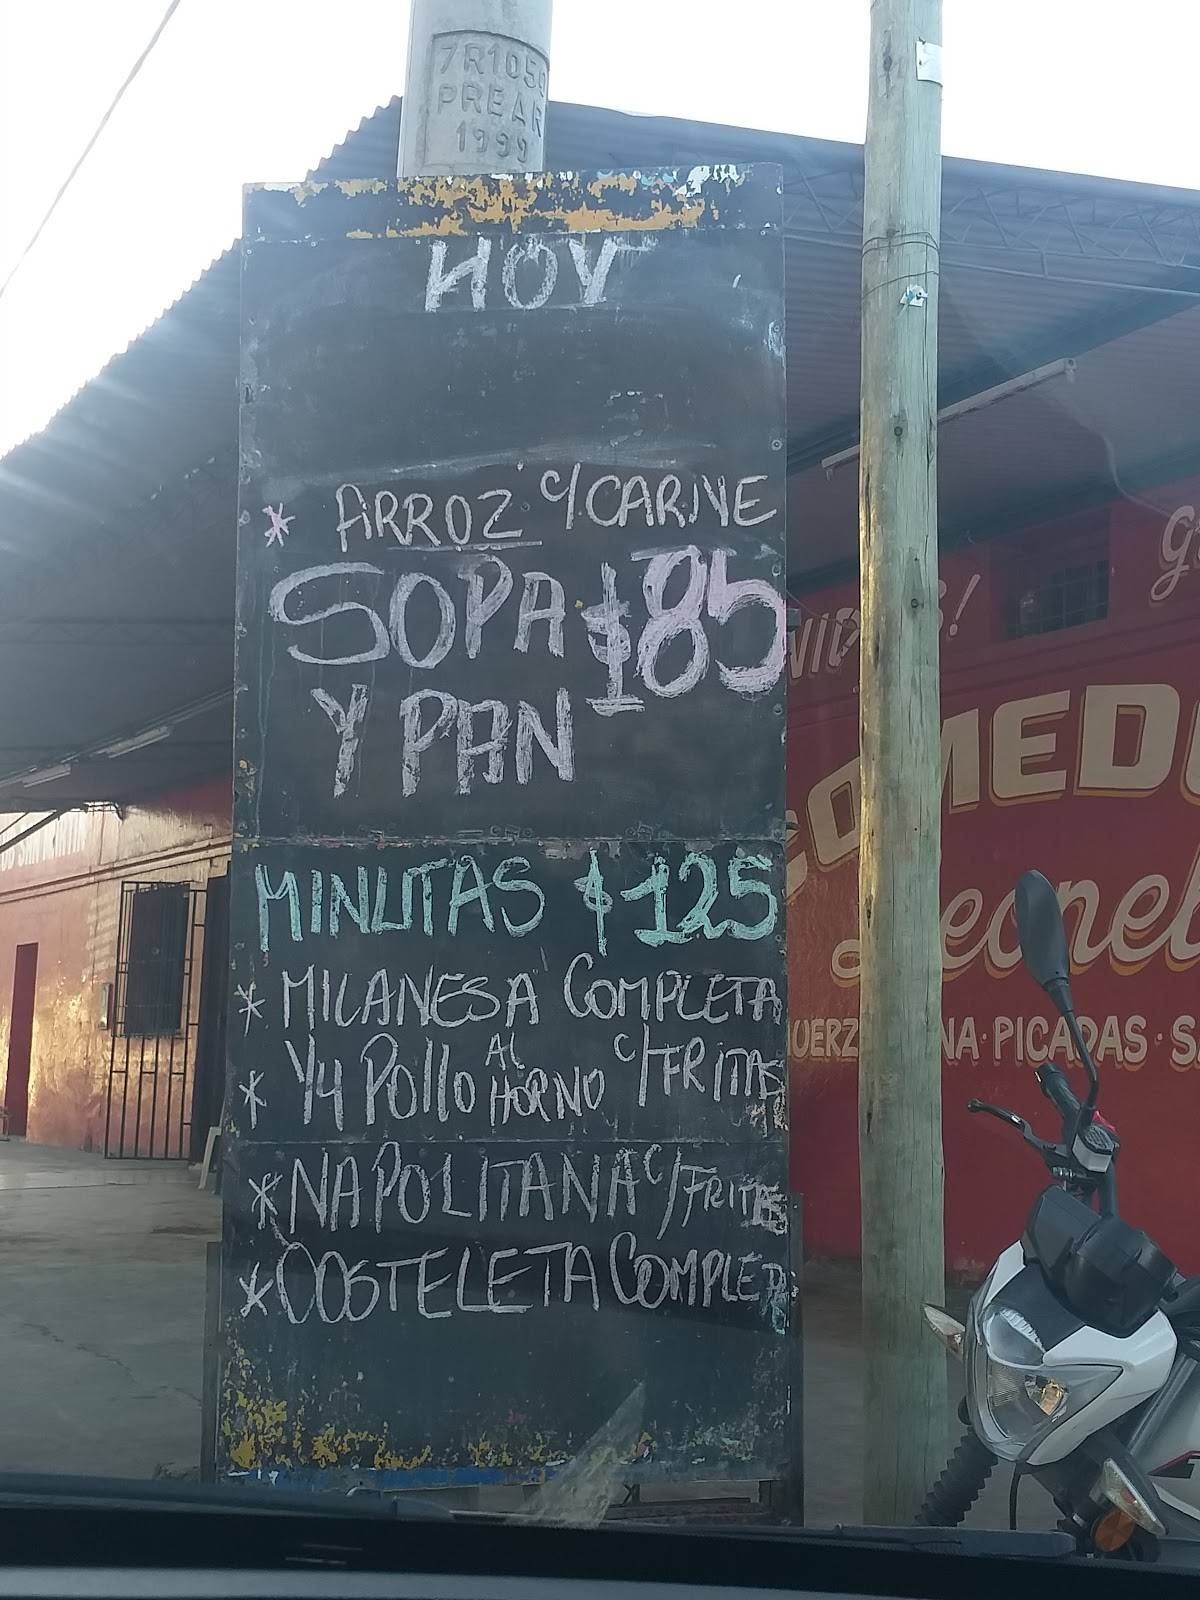 7R105
PREAR
1999
HOY
* ARROZ C/CARNE
SOPA $185
Y PAN
MINUTAS $125
* MILANESA COMPLETA
* 1/4 POllO AL HORNO C/FRITAS
* NAPOLITANA C/FRITAS
* COSTELETA COMPLETA
COMED
Leonel
NA · PICADAS · S